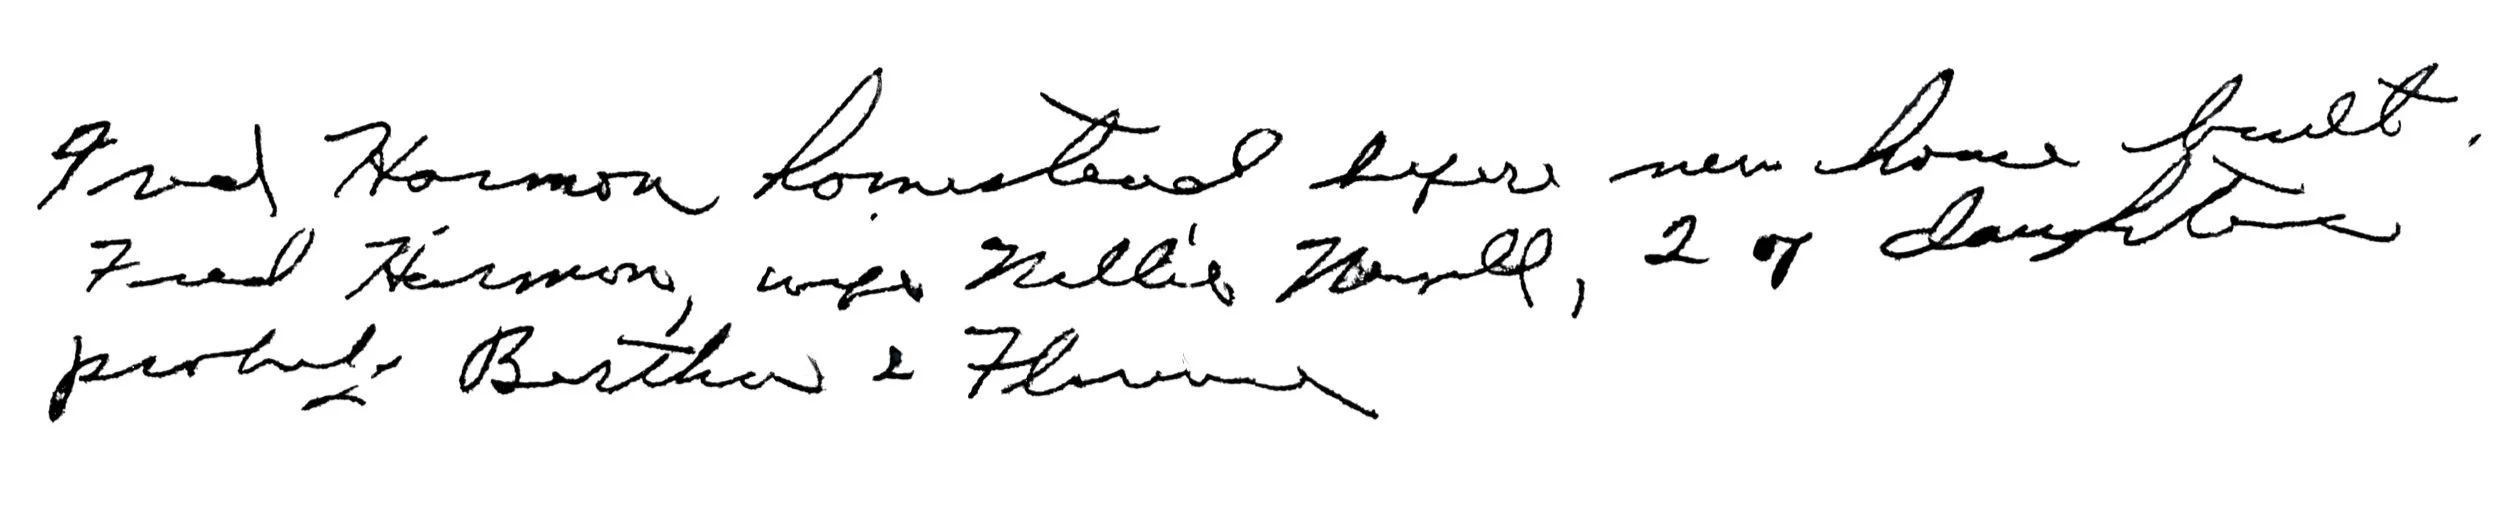 Fred Harmon homestead before new house built.
Fred Harmon, wife Nellie, 2 of daughters
probably Bertha & Florence